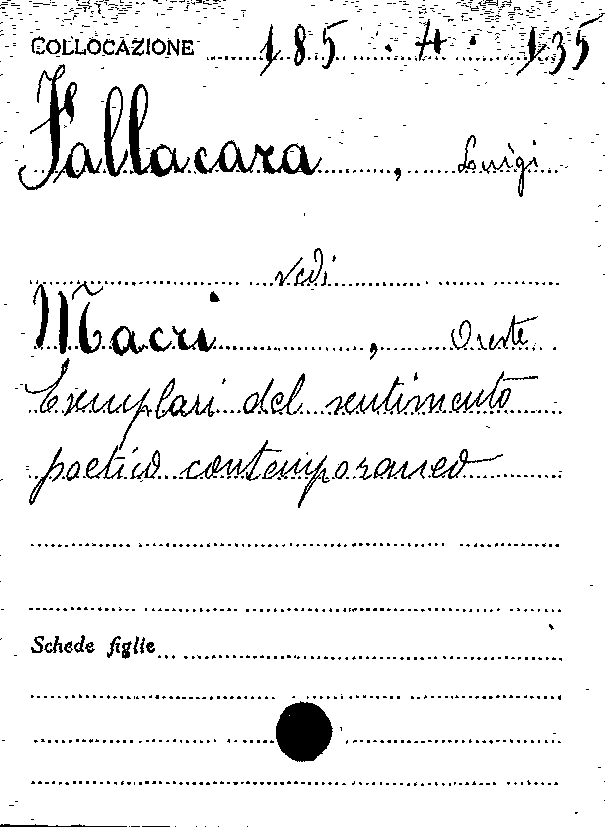 COLLOCAZIONE 185 . H . 135
Fallacara , Luigi
vedi
Macrì , Oreste
Esemplari del sentimento
poetico contemporaneo
Schede figlie